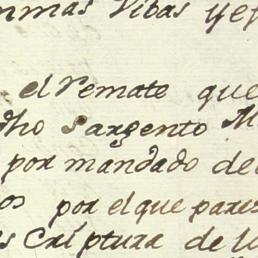 mmas Vibas y ef
el Remate que
dho Sargento M
por mandado de
os por el que pares
scriptura de lo